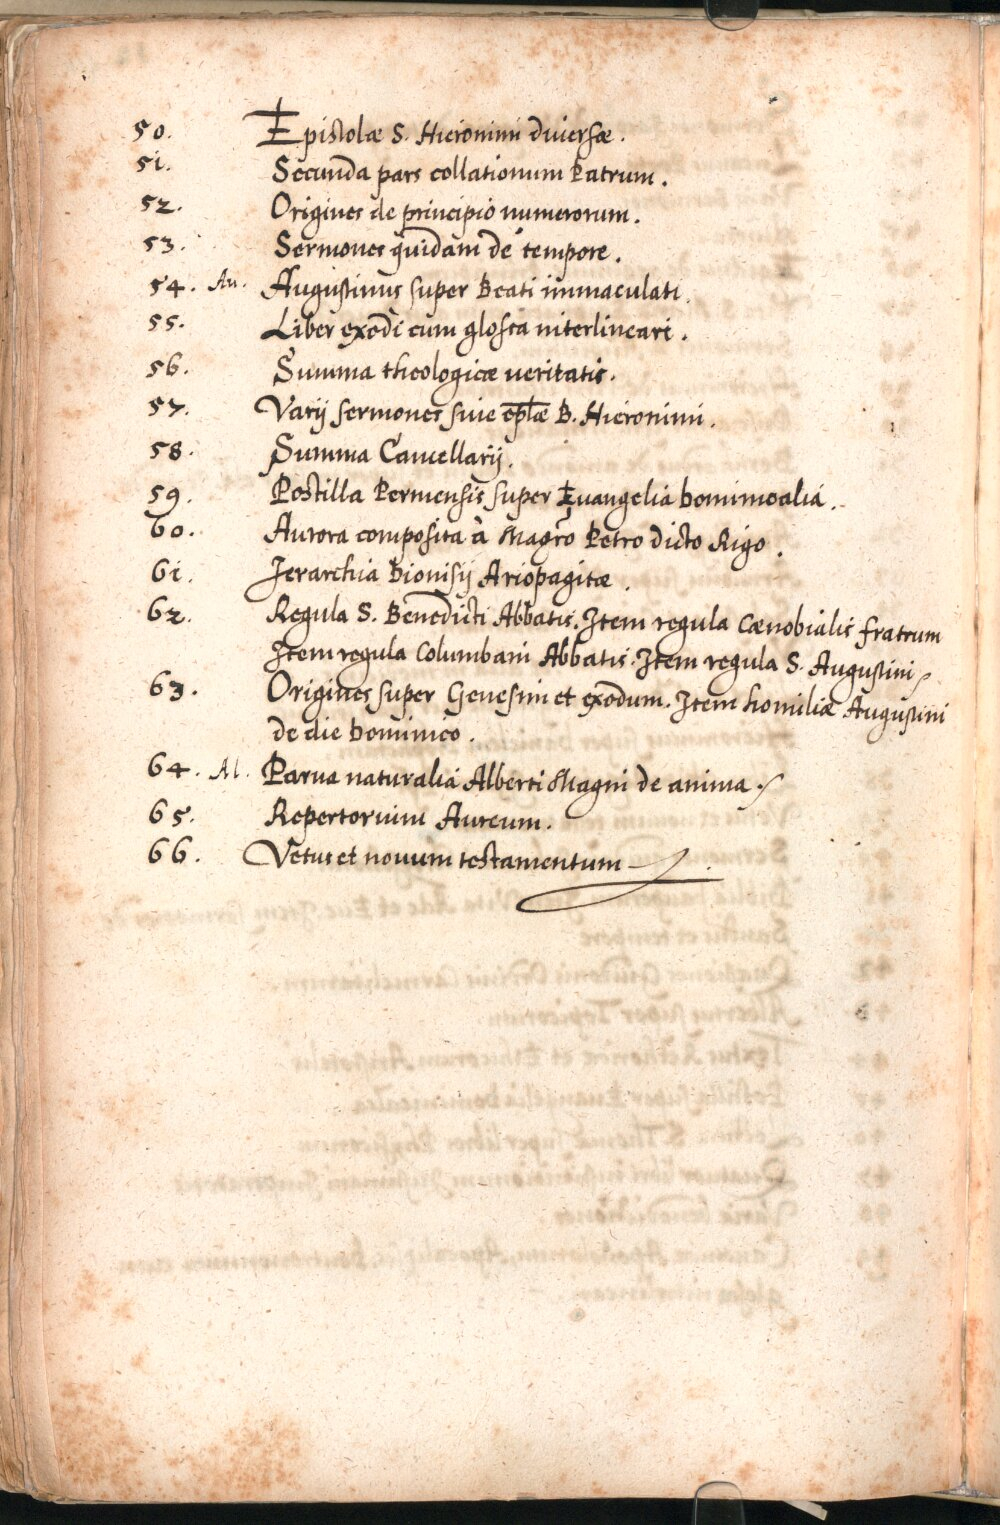 50. Epistolæ S. Hieronimi diversæ.
51. Secunda pars collationum Patrum.
52. Origines de principio numerorum.
53. Sermones quidam de tempore.
54. Au. Augustinus super Beati immaculati.
55. Liber exodi cum glossa niterlineari.
56. Summa theologicæ veritatis.
57. Varij sermones sive eplæ B. Hieronimi.
58. Summa Cancellarij.
59. Postilla Permensis super Evangelia dominicalia.
60. Aurora composita à Magrō Petro dicto Rigo.
61. Jerarchia Dionisij Ariopagitæ.
62. Regula S. Benedicti Abbatis. Item regula Cænobialis fratrum
Item regula Columbani Abbatis. Item regula S. Augustini
63. Origines super Genesim et exodum. Item homiliæ Augustini
de die dominico.
64. Al. Parva naturalia Alberti Magni de anima.
65. Repertorium Aureum.
66. Vetus et novum testamentum